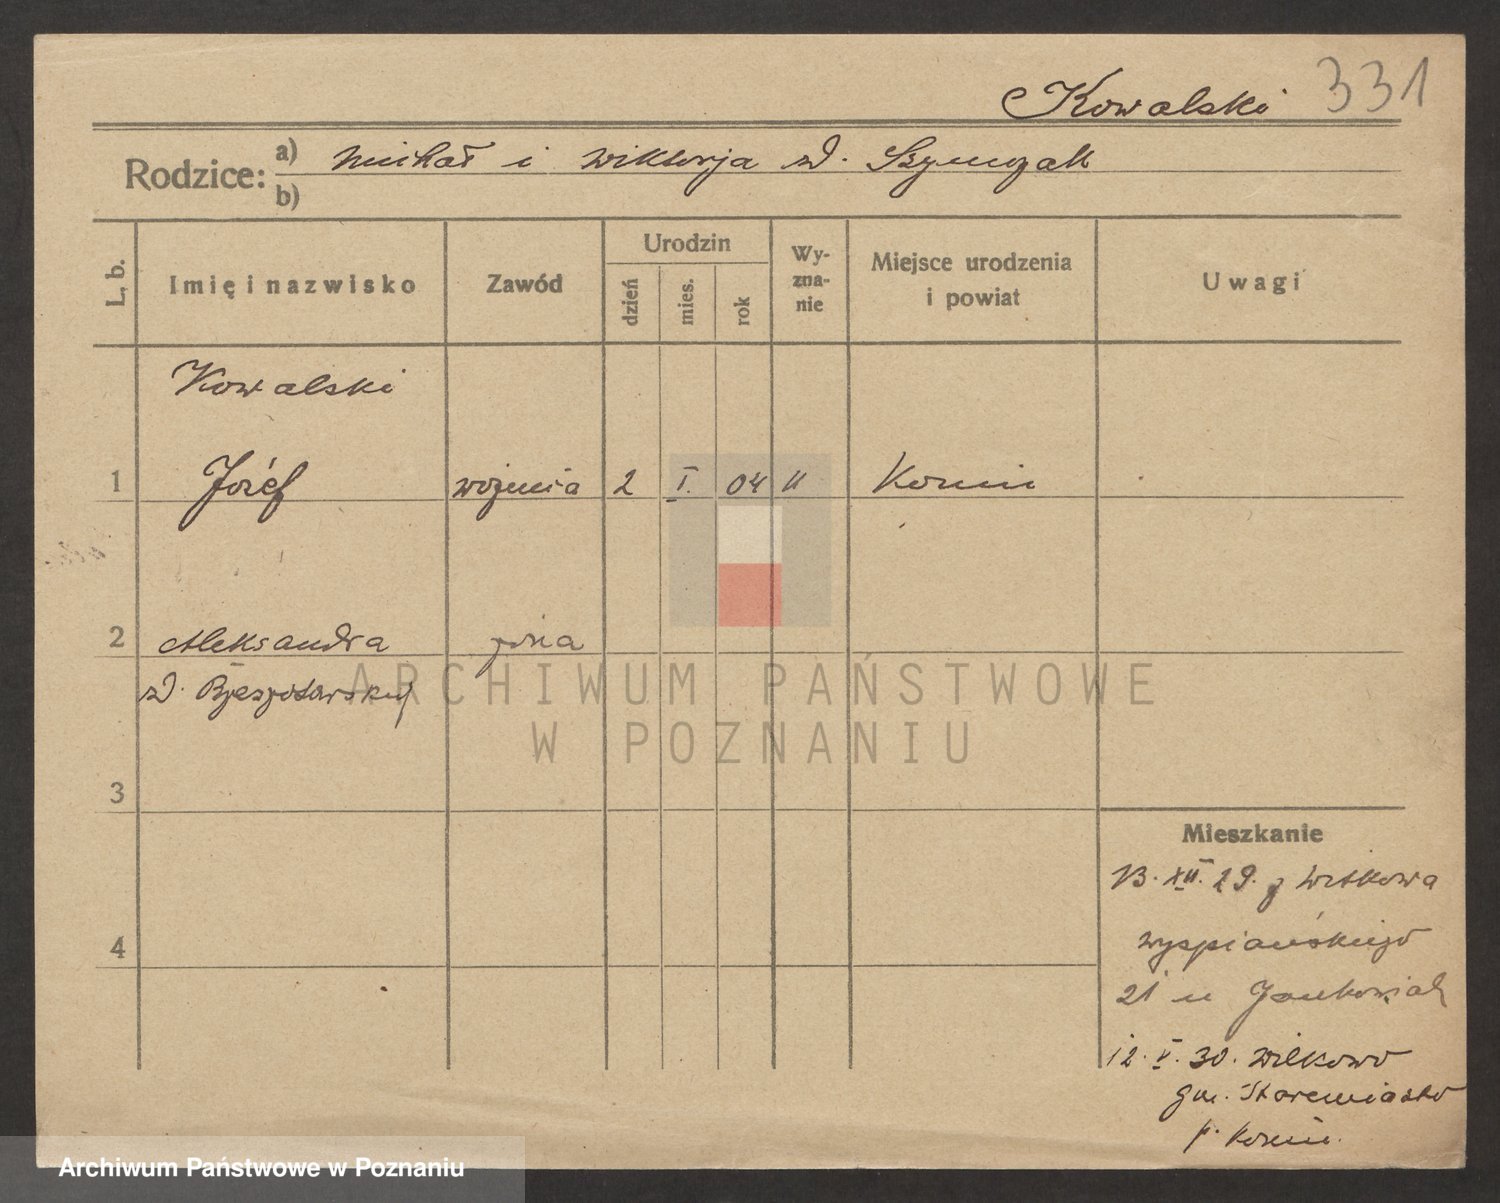 Kowalski 331
Rodzice: a) Michał i Wiktorja zd. Szymczak
b)
L. b.
Imię i nazwisko
Zawód
Urodzin
dzień
mies.
rok
Wy-
zna-
nie
Miejsce urodzenia
i powiat
Uwagi
Kowalski
1 Józef woźnica 2 I. 04 Konin
2 Aleksandra żona
zd.
3
4
Mieszkanie
13. XII. 29. z Witkowa
Wyspiańskiego
21 u Jankowiak
12. V. 30. Wilkowo
gm. Staremiasto
p. Konin.
ARCHIWUM PAŃSTWOWE
W POZNANIU
Archiwum Państwowe w Poznaniu